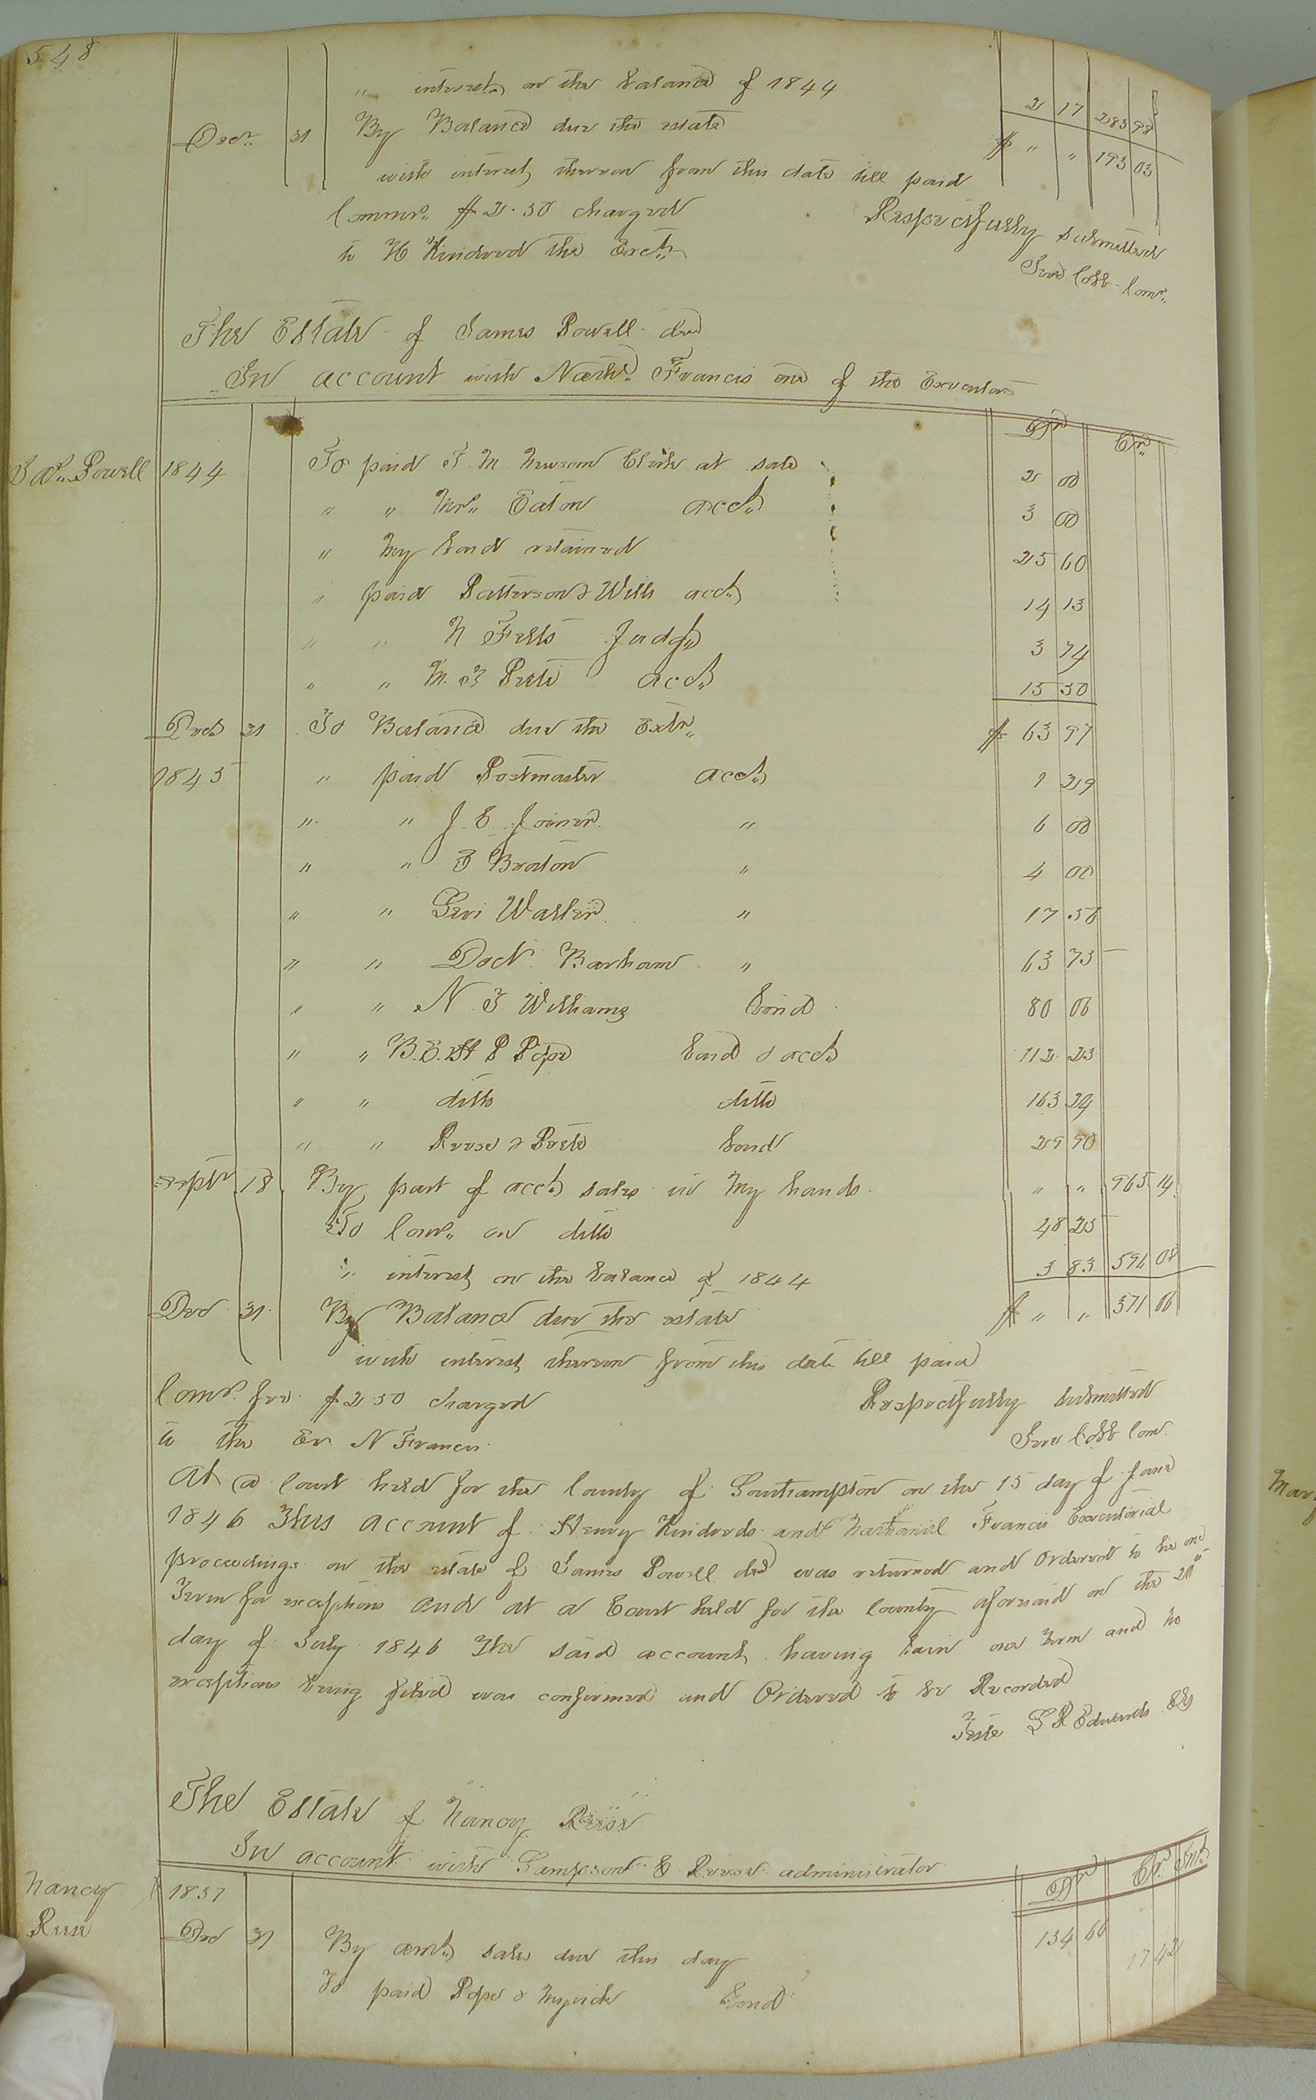 548
" interest on the balance of 1844 2 17 283 98
Decr. 31 By Balance due the estate $ " " 193 03
with interest thereon from this date till paid
Commr. $2.50 charged Respectfully submitted
to H Kindred the Exctr. Cobb Comr.
The Estate of James Powell decd
In account with Nathl. Francis one of the Executors
Dr Cr.
Jas. Powell 1844 To paid T. M. Newsom Clerk at sale 2 00
" " Mrs. Eaton acct. 3 00
" My bond retained 25 60
" paid Patterson & Wills acct. 14 13
" " N Felts Judgt. 3 74
" " acct. 15 50
Decr. 31 To Balance due the Extr. $ 63 97
1845 " paid Postmaster acct. 1 29
" " J. E. Joiner " 6 00
" " E Beaton " 4 00
" " Levi Waller " 17 56
" " Doct. Barham " 63 75
" " N. T Williams bond 80 06
" " B. E. & H P Pope bond & acct. 112 23
" " ditto ditto 163 24
" " Reese & Prete bond 29 90
Septr 18 By part of acct. sales in my hands " " 965 14
To Comr. on ditto 48 25
" interest on the balance of 1844 3 83 594 08
Decr. 31 By Balance due the estate $ " " 371 06
with interest thereon from this date till paid
Comr. fee $2 50 charged Respectfully submitted
to the Ex N Francis Cobb Com.
At a Court held for the County of Southampton on the 15 day of June
1846 This account of Henry Kindreds and Nathaniel Francis Executorial
proceedings on the estate of James Powell decd was returned and Ordered to lie one
Term for exceptions and at a Court held for the County aforesaid on the 20th
day of July 1846 The said account having lain one term and no
exceptions being filed was confirmed and Ordered to be Recorded
Teste L R Edwards Clk
The Estate of Nancy Reese
In account with Sampson C Reese administrator
Dr Cr. Int.
Nancy 1837
Reese Decr 31 By amt. sales due this day 134 66
To paid Pope & Myrick bond 17 42